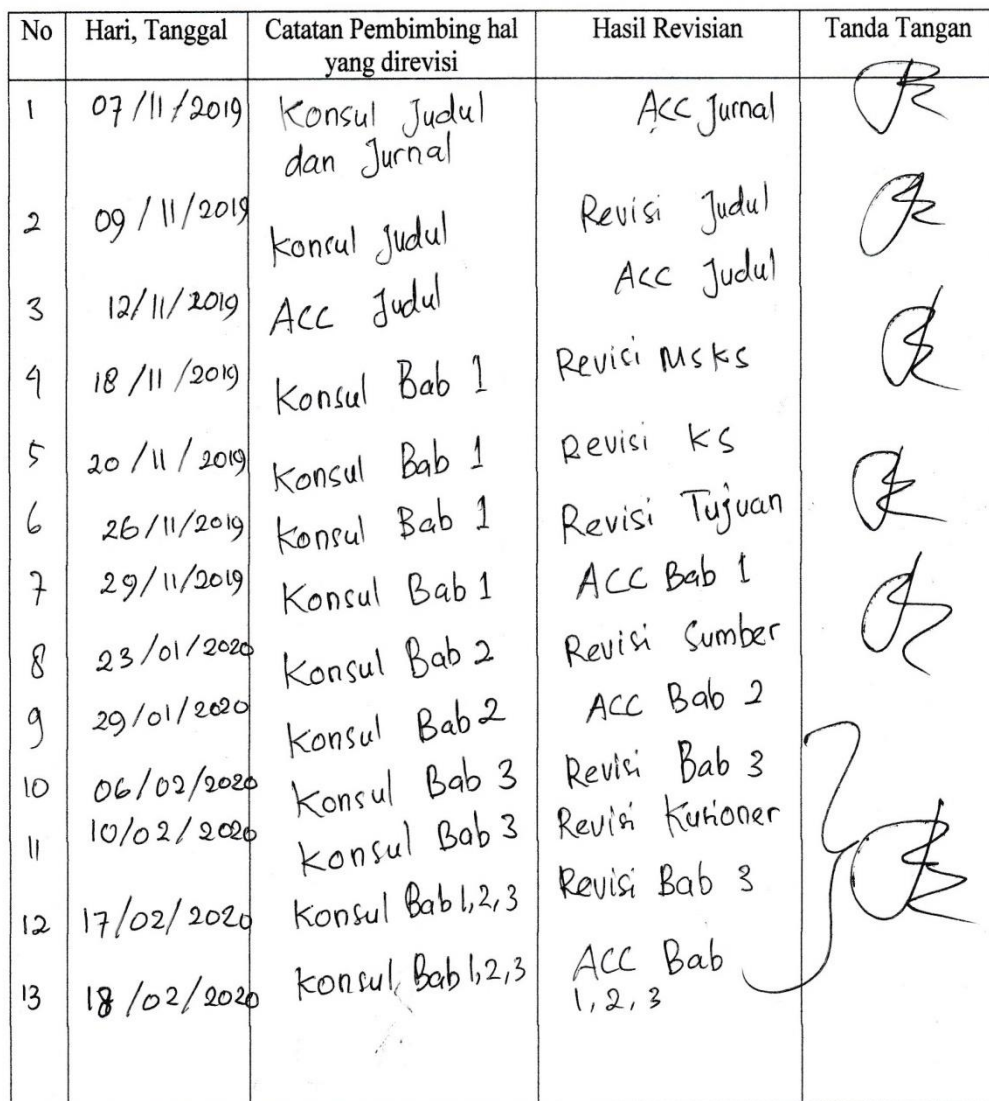 No Hari, Tanggal Catatan Pembimbing hal yang direvisi Hasil Revisian Tanda Tangan
1 07/11/2019 Konsul Judul dan Jurnal Acc Jurnal
2 09/11/2019 Konsul Judul Revisi Judul
3 12/11/2019 Acc Judul Acc Judul
4 18/11/2019 Konsul Bab 1 Revisi MSKS
5 20/11/2019 Konsul Bab 1 Revisi KS
6 26/11/2019 Konsul Bab 1 Revisi Tujuan
7 29/11/2019 Konsul Bab 1 ACC Bab 1
8 23/01/2020 Konsul Bab 2 Revisi Sumber
9 29/01/2020 Konsul Bab 2 ACC Bab 2
10 06/02/2020 Konsul Bab 3 Revisi Bab 3
11 10/02/2020 Konsul Bab 3 Revisi Kusioner
12 17/02/2020 Konsul Bab 1,2,3 Revisi Bab 3
13 18/02/2020 Konsul Bab 1,2,3 ACC Bab 1,2,3